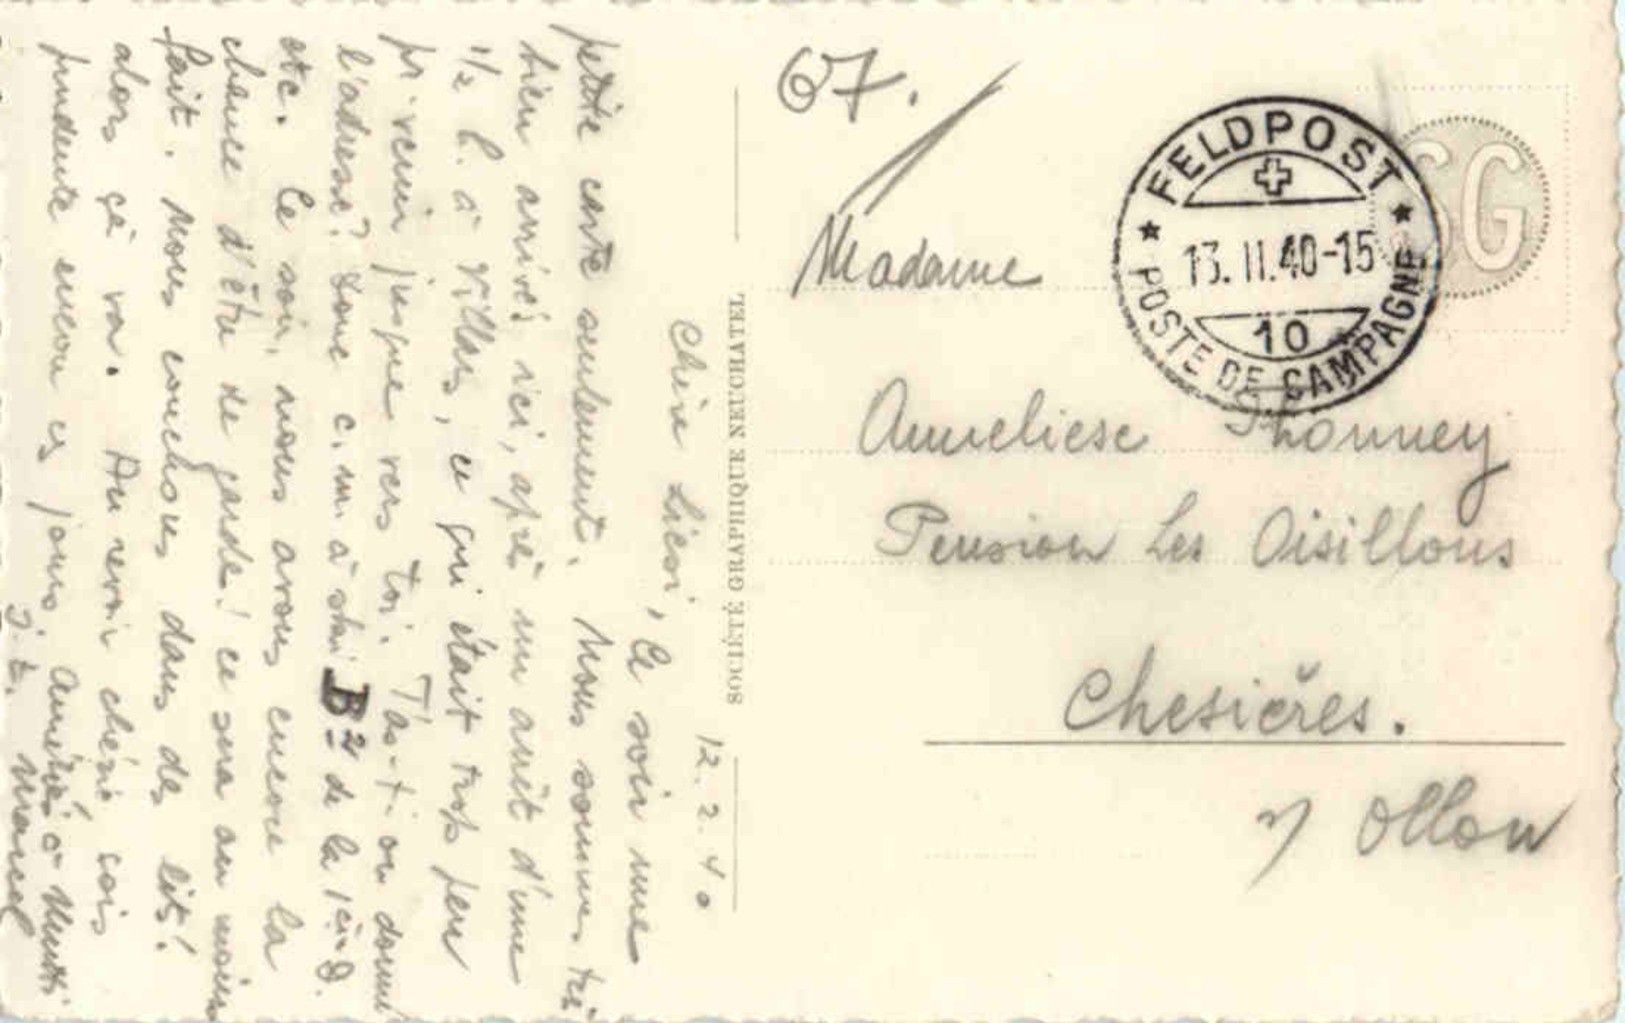 12.2.40
Chère Liesi, Ce soir une
petite carte seulement. Nous sommes très
bien arrivés ici, après un arrêt d'une
1/2 h. à Villars, ce qui était trop peu
pr. venir jusque vers toi. T'as-t-on donné
l'adresse? Donc c.m. à skis Br de la 1ère D.
etc. Ce soir, nous avons encore la
chance d'être de garde! ce sera au moins
fait. Nous couchons dans des lits!
alors çà va. Au revoir chérie sois
prudente encore ces jours. Amitiés à Mutti
J. t. Marcel
SOCIÉTÉ GRAPHIQUE NEUCHATEL
67.
FELDPOST
13.II.40-15
10
POSTE DE CAMPAGNE
SG
Madame
Anneliese Thonney
Pension Les Oisillons
Chesières.
s/ Ollon